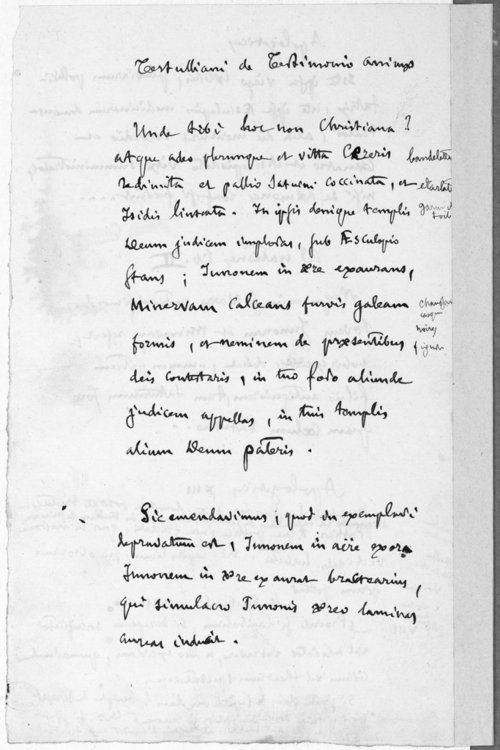 Tertulliani de Testimonio animæ
Unde tibi hoc non Christiana ?
atque adeo plerumque et vitta Cereris bandelette
redimita et pallio Saturni coccinata, et écarlate
Isidis linteata. In ipsis denique templis
Deum judicem imploras, sub Æsculapio
stans ; Junonem in ære exaurans,
Minervam calceans furvis galeam
formis, et neminem de præsentibus
deis contestaris, in tuo foro aliunde
judicem appellas, in tuis templis
alium Deum pateris.
Sic emendavimus ; quod in exemplari
depravatum est, Junonem in aëre exora
Junonem in ære exaurat bractearius,
qui simulacro Junonis æreo laminas
aureas induit.